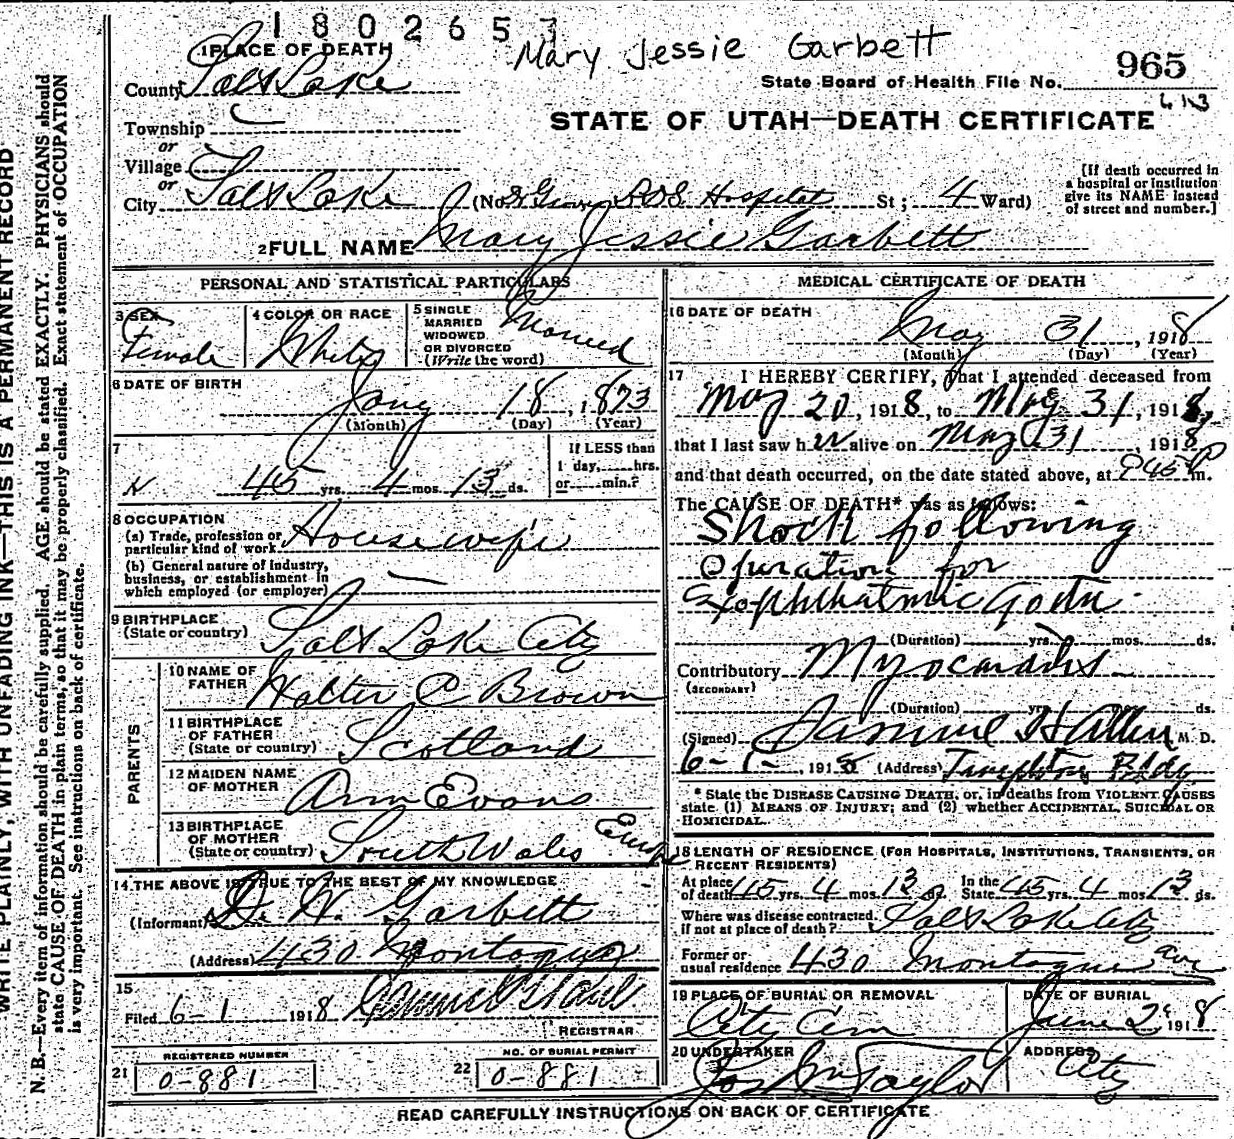 180265
Mary Jessie Garbett
965
State Board of Health File No.
STATE OF UTAH—DEATH CERTIFICATE
1 PLACE OF DEATH
County Salt Lake
Township
or
Village
or
City Salt Lake (No. L.D.S. Hospital St; 4 Ward)
[If death occurred in a hospital or institution give its NAME instead of street and number.]
2 FULL NAME Mary Jessie Garbett
PERSONAL AND STATISTICAL PARTICULARS
3 SEX Female
4 COLOR OR RACE White
5 SINGLE MARRIED WIDOWED OR DIVORCED (Write the word) Married
6 DATE OF BIRTH Jany 18, 1873
(Month) (Day) (Year)
7 45 yrs. 4 mos. 13 ds.
If LESS than 1 day, hrs. or min.?
8 OCCUPATION
(a) Trade, profession or particular kind of work Housewife
(b) General nature of industry, business, or establishment in which employed (or employer) —
9 BIRTHPLACE (State or country) Salt Lake City
PARENTS
10 NAME OF FATHER Walter C Brown
11 BIRTHPLACE OF FATHER (State or country) Scotland
12 MAIDEN NAME OF MOTHER Ann Evans
13 BIRTHPLACE OF MOTHER (State or country) South Wales Europe
14 THE ABOVE IS TRUE TO THE BEST OF MY KNOWLEDGE
(Informant) Garbett
(Address) 430 Montague
15
Filed 6-1 1918
REGISTRAR
REGISTERED NUMBER
21 0-881
NO. OF BURIAL PERMIT
22 0-881
MEDICAL CERTIFICATE OF DEATH
16 DATE OF DEATH
May 31, 1918
(Month) (Day) (Year)
17 I HEREBY CERTIFY, that I attended deceased from
May 20, 1918, to May 31, 1918,
that I last saw her alive on May 31 1918
and that death occurred, on the date stated above, at 845 P m.
The CAUSE OF DEATH* was as follows:
Shock following
Operation for
Exophthalmic Goitre.
(Duration) yrs. mos. ds.
Contributory Myocarditis
(SECONDARY)
(Duration) yrs. mos. ds.
(Signed) Samuel H Allen M. D.
6-1-, 1918 (Address) Templeton Bldg
* State the DISEASE CAUSING DEATH, or, in deaths from VIOLENT CAUSES
state (1) MEANS OF INJURY; and (2) whether ACCIDENTAL, SUICIDAL OR
HOMICIDAL.
18 LENGTH OF RESIDENCE (FOR HOSPITALS, INSTITUTIONS, TRANSIENTS, OR
RECENT RESIDENTS)
At place of death 45 yrs. 4 mos. 13 ds. In the State 45 yrs. 4 mos. 13 ds.
Where was disease contracted. if not at place of death? Salt Lake City
Former or usual residence 430 Montague ave
19 PLACE OF BURIAL OR REMOVAL City Cem
DATE OF BURIAL June 2d 1918
20 UNDERTAKER Jos Wm Taylor
ADDRESS City
READ CAREFULLY INSTRUCTIONS ON BACK OF CERTIFICATE
WRITE PLAINLY, WITH UNFADING INK—THIS IS A PERMANENT RECORD
N. B.—Every item of information should be carefully supplied. AGE should be stated EXACTLY. PHYSICIANS should
state CAUSE OF DEATH in plain terms, so that it may be properly classified. Exact statement of OCCUPATION
is very important. See instructions on back of certificate.